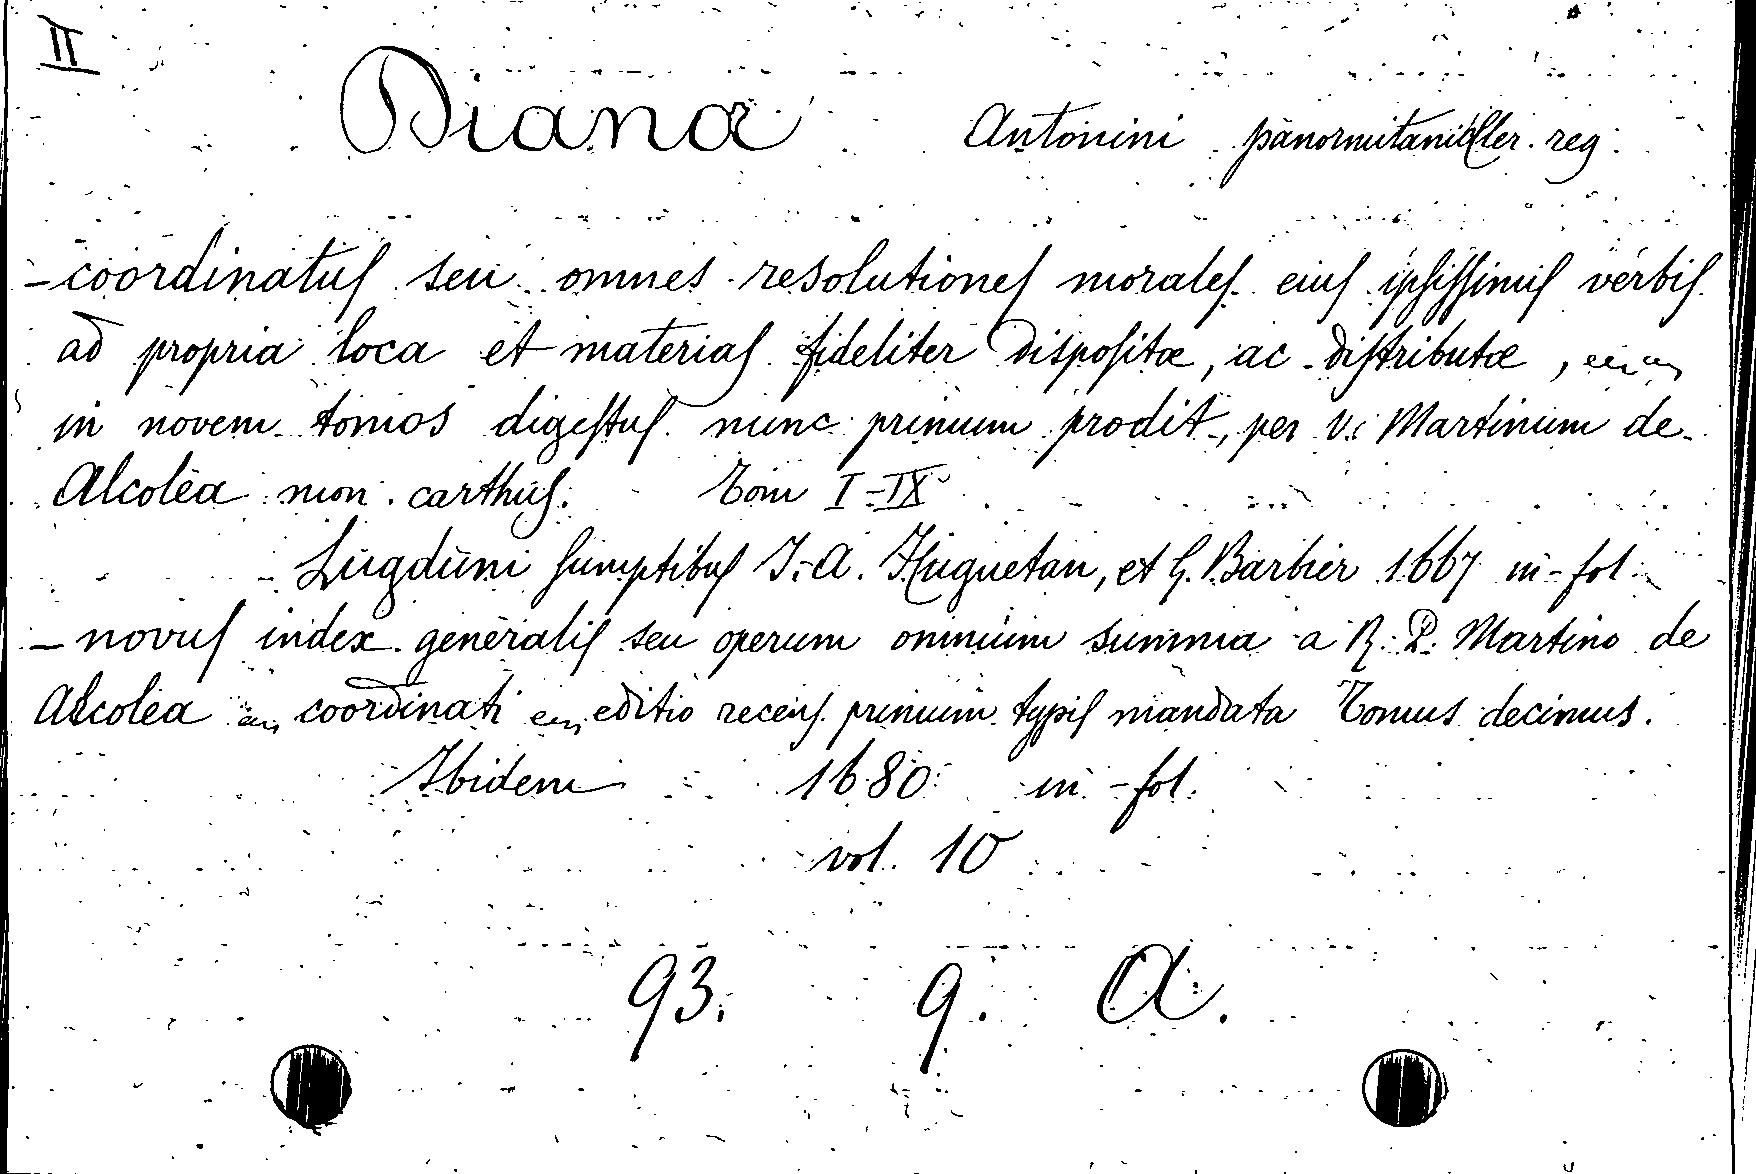 II
Diana Antonini panormitani Cler. reg.
- coordinatus seu omnes resolutiones morales eius ipsissimis verbis
ad propria loca et materias fideliter dispositæ, ac distributæ,
in novem tomos digestus nunc primum prodit, per v. Martinum de
Alcolea mon. carthus. Tom I-IX
Lugduni sumptibus I. A. Huguetan, et G. Barbier 1667 in-fol.
- novus index generalis seu operum omnium summa a R. P. Martino de
Alcolea coordinati editio recens primum typis mandata Tomus decimus.
Ibidem 1680 in-fol.
vol. 10
93. 9. A.